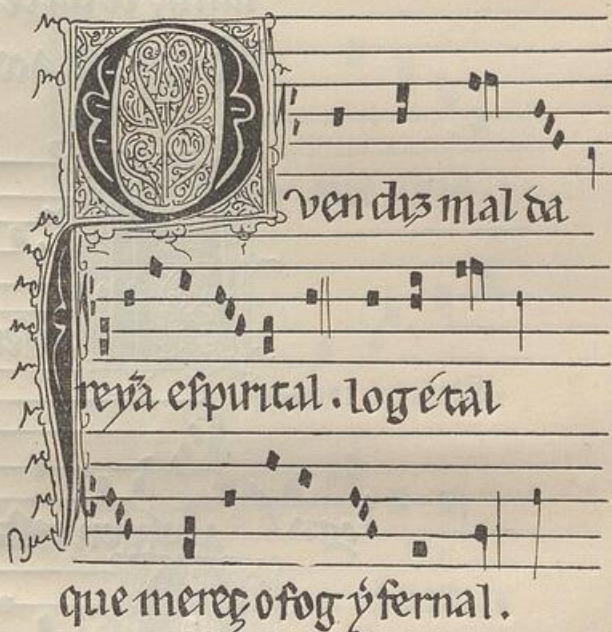 Quen diz mal da
reyñа espirital . log é tal
que mereç o fog ỹfernal .